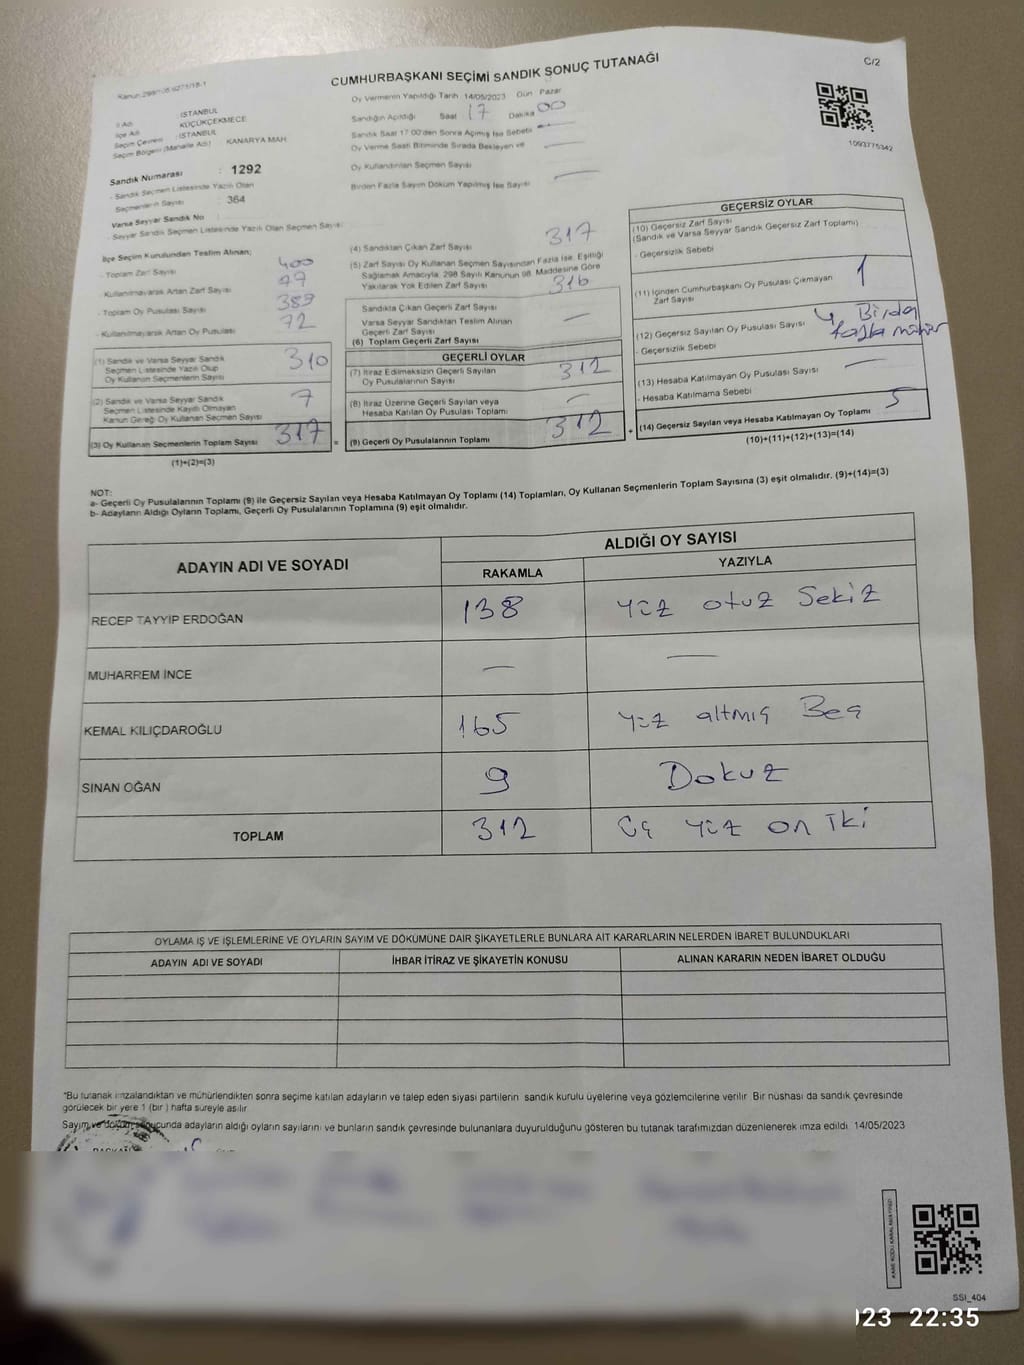 CUMHURBAŞKANI SEÇİMİ SANDIK SONUÇ TUTANAĞI
C/2
1093775342
İl Adı : İSTANBUL
İlçe Adı : KÜÇÜKÇEKMECE
Seçim Çevresi : İSTANBUL
Seçim Bölgesi (Mahalle Adı) KANARYA MAH
Sandık Numarası : 1292
- Sandık Seçmen Listesinde Yazılı Olan
Seçmenlerin Sayısı : 364
Varsa Seyyar Sandık No :
- Seyyar Sandık Seçmen Listesinde Yazılı Olan Seçmen Sayısı:
Oy Vermenin Yapıldığı Tarih 14/05/2023 Gün Pazar
Sandığın Açıldığı Saat 17 Dakika 00
Sandık Saat 17.00'den Sonra Açılmış İse Sebebi
Oy Verme Saati Bitiminde Sırada Bekleyen ve
Oy Kullandırılan Seçmen Sayısı
Birden Fazla Sayım Döküm Yapılmış İse Sayısı
İlçe Seçim Kurulundan Teslim Alınan;
- Toplam Zarf Sayısı 400
- Kullanılmayarak Artan Zarf Sayısı
- Toplam Oy Pusulası Sayısı 389
- Kullanılmayarak Artan Oy Pusulası 72
(1) Sandık ve Varsa Seyyar Sandık
Seçmen Listesinde Yazılı Olup
Oy Kullanan Seçmenlerin Sayısı 310
(2) Sandık ve Varsa Seyyar Sandık
Seçmen Listesinde Kayıtlı Olmayan
Kanun Gereği Oy Kullanan Seçmen Sayısı 7
(3) Oy Kullanan Seçmenlerin Toplam Sayısı 317 =
(1)+(2)=(3)
(4) Sandıktan Çıkan Zarf Sayısı 317
(5) Zarf Sayısı Oy Kullanan Seçmen Sayısından Fazla İse, Eşitliği
Sağlamak Amacıyla, 298 Sayılı Kanunun 98. Maddesine Göre
Yakılarak Yok Edilen Zarf Sayısı 316
Sandıkta Çıkan Geçerli Zarf Sayısı
Varsa Seyyar Sandıktan Teslim Alınan
Geçerli Zarf Sayısı
(6) Toplam Geçerli Zarf Sayısı
GEÇERLİ OYLAR
(7) İtiraz Edilmeksizin Geçerli Sayılan
Oy Pusulalarının Sayısı 312
(8) İtiraz Üzerine Geçerli Sayılan veya
Hesaba Katılan Oy Pusulası Toplamı
(9) Geçerli Oy Pusulalarının Toplamı 312 +
GEÇERSİZ OYLAR
(10) Geçersiz Zarf Sayısı
(Sandık ve Varsa Seyyar Sandık Geçersiz Zarf Toplamı)
- Geçersizlik Sebebi
(11) İçinden Cumhurbaşkanı Oy Pusulası Çıkmayan
Zarf Sayısı 1
(12) Geçersiz Sayılan Oy Pusulası Sayısı 4 Birden
- Geçersizlik Sebebi fazla mühür
(13) Hesaba Katılmayan Oy Pusulası Sayısı
- Hesaba Katılmama Sebebi
(14) Geçersiz Sayılan veya Hesaba Katılmayan Oy Toplamı 5
(10)+(11)+(12)+(13)=(14)
NOT:
a- Geçerli Oy Pusulalarının Toplamı (9) ile Geçersiz Sayılan veya Hesaba Katılmayan Oy Toplamı (14) Toplamları, Oy Kullanan Seçmenlerin Toplam Sayısına (3) eşit olmalıdır. (9)+(14)=(3)
b- Adayların Aldığı Oyların Toplamı, Geçerli Oy Pusulalarının Toplamına (9) eşit olmalıdır.
ADAYIN ADI VE SOYADI
ALDIĞI OY SAYISI
RAKAMLA YAZIYLA
RECEP TAYYİP ERDOĞAN 138 yüz otuz Sekiz
MUHARREM İNCE — —
KEMAL KILIÇDAROĞLU 165 yüz altmış Beş
SİNAN OĞAN 9 Dokuz
TOPLAM 312 üç yüz on iki
OYLAMA İŞ VE İŞLEMLERİNE VE OYLARIN SAYIM VE DÖKÜMÜNE DAİR ŞİKAYETLERLE BUNLARA AİT KARARLARIN NELERDEN İBARET BULUNDUKLARI
ADAYIN ADI VE SOYADI İHBAR İTİRAZ VE ŞİKAYETİN KONUSU ALINAN KARARIN NEDEN İBARET OLDUĞU
*Bu tutanak imzalandıktan ve mühürlendikten sonra seçime katılan adayların ve talep eden siyasi partilerin sandık kurulu üyelerine veya gözlemcilerine verilir. Bir nüshası da sandık çevresinde
görülecek bir yere 1 (bir) hafta süreyle asılır.
Sayım ve döküm sonucunda adayların aldığı oyların sayılarını ve bunların sandık çevresinde bulunanlara duyurulduğunu gösteren bu tutanak tarafımızdan düzenlenerek imza edildi. 14/05/2023
SSI_404
023 22:35